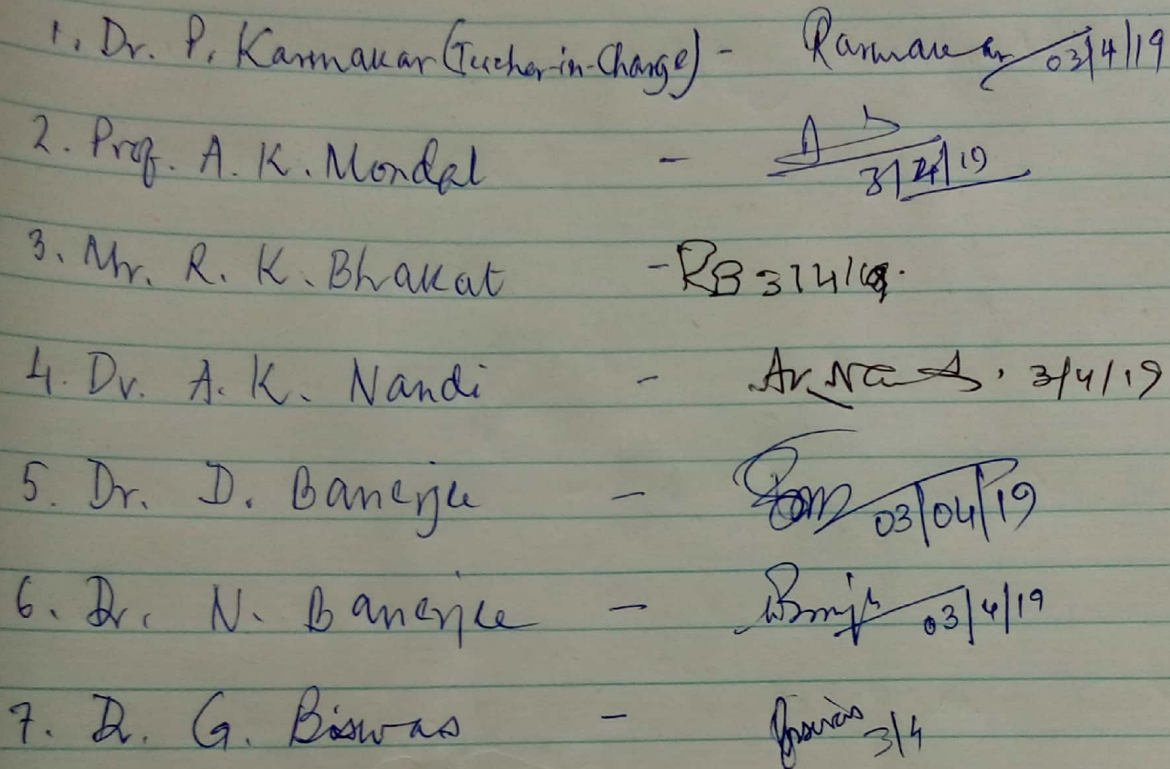 1. Dr. P. Karmakar (Teacher-in-Charge) - 03/4/19
2. Prof. A. K. Mondal - 3/4/19
3. Mr. R. K. Bhakat - RB 3/4/19.
4. Dr. A. K. Nandi - 3/4/19
5. Dr. D. Banerjee - 03/04/19
6. Dr. N. Banerjee - 03/4/19
7. Dr. G. Biswas - 3/4